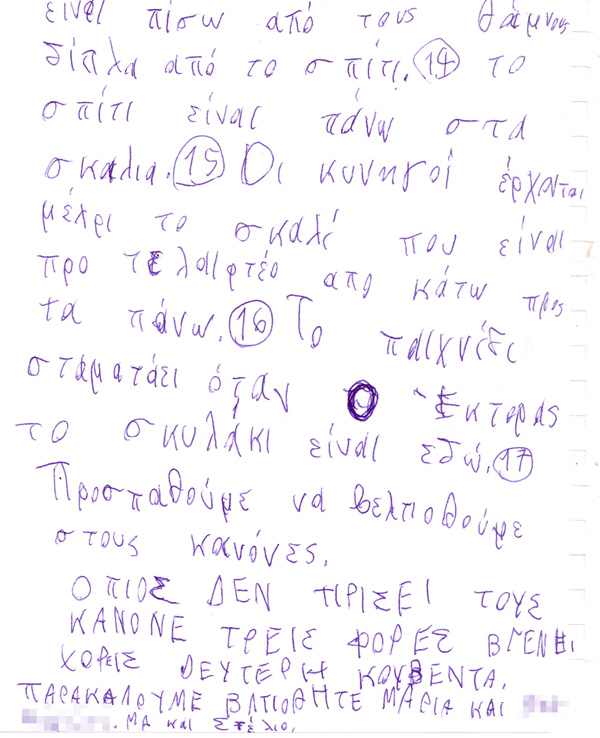 είναι πίσω από τους θάμνους
δίπλα από το σπίτι. 14 το
σπίτι είναι πάνω στα
σκαλια. 15 Οι κυνηγοί έρχονται
μέχρι το σκαλί που είναι
προ τελαιφτέο απο κάτω προς
τα πάνω. 16 Το παιχνίδι
σταματάει όταν ο Έκτορας
το σκυλάκι είναι εδώ. 17
Προσπαθούμε να βελτιοθούμε
στους κανόνες.
ΟΠΙΟΣ ΔΕΝ ΤΙΡΙΣΕΙ ΤΟΥΣ
ΚΑΝΟΝΕ ΤΡΕΙΣ ΦΟΡΕΣ ΒΓΕΝΗ
ΧΟΡΕΙΣ ΔΕΥΤΕΡΗ ΚΟΥΒΕΝΤΑ.
ΠΑΡΑΚΑΛΟΥΜΕ ΒΛΤΙΟΘΗΤΕ ΜΑΡΙΑ ΚΑΙ
. ΜΑ και Στέλιο.